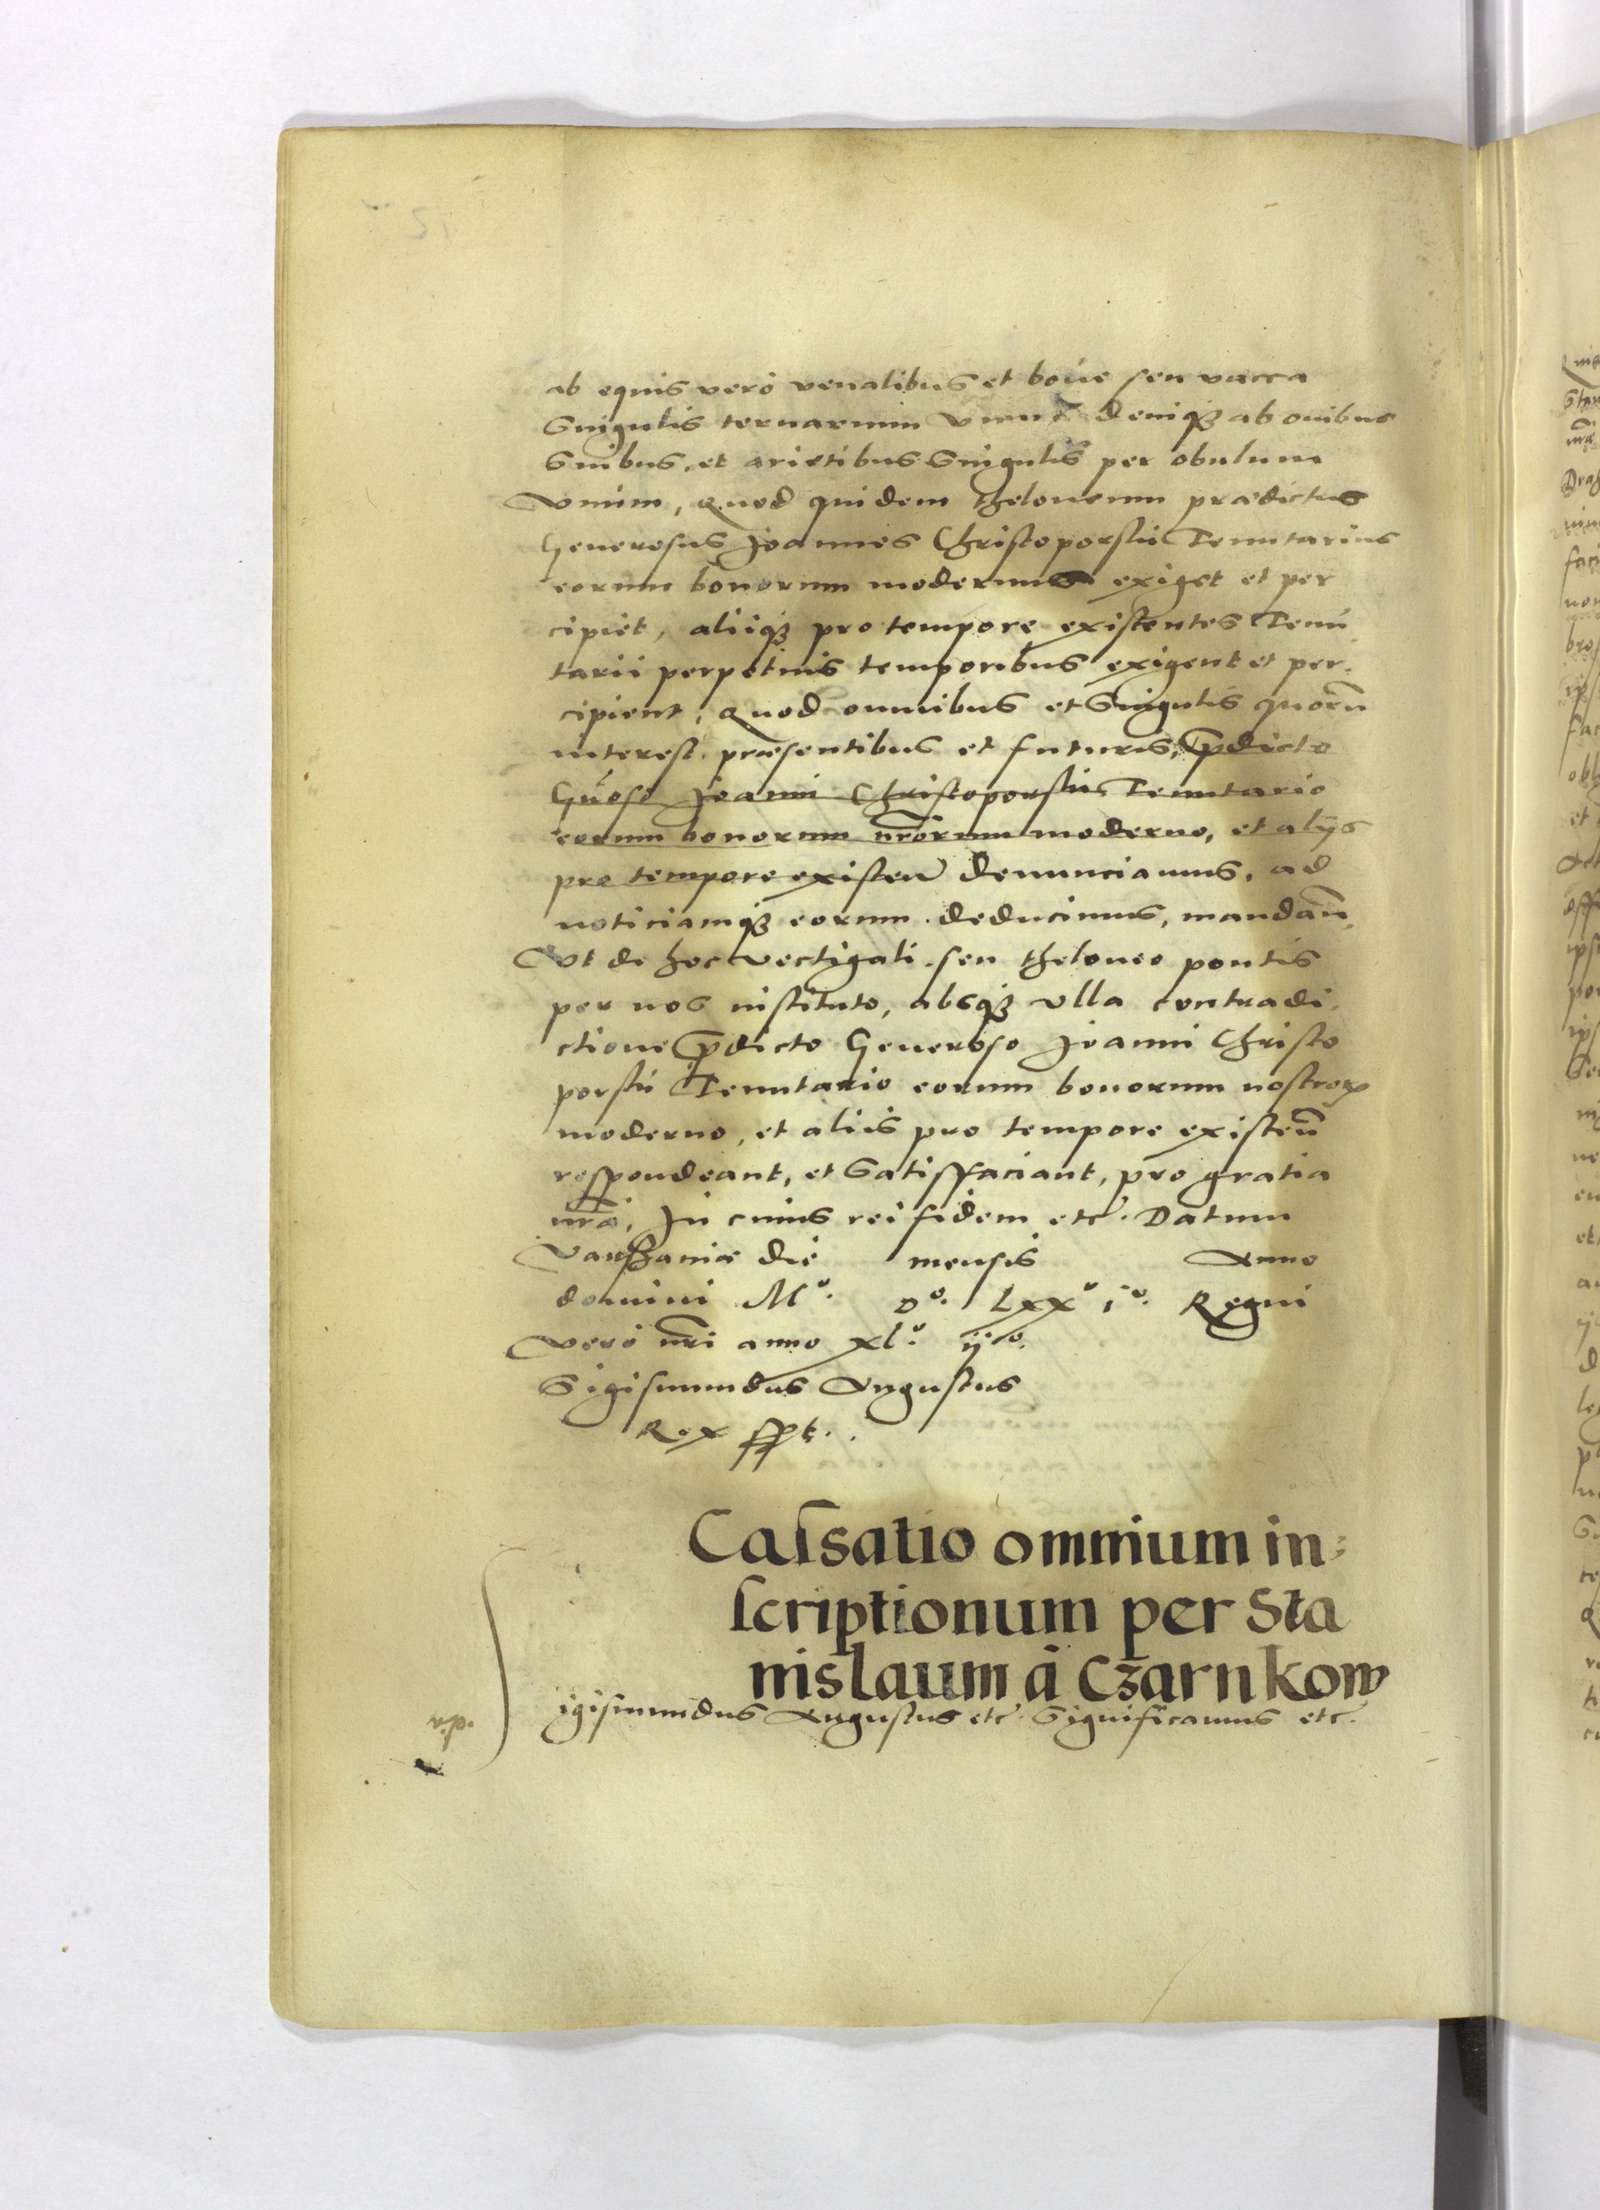 ab equis vero venalibus et boue seu vacca
Singulis ternarium vnum deniqȝ ab ouibus
Suibus, et arietibus Singulis per obulum
vnum, Quod quidem theloneum prædictus
Generosus Joannes Christoporski Tenutarius
eorum bonorum modernus exiget et per
cipiet, aliiqȝ pro tempore existentes Tenu
tarii perpetuis temporibus exigent et per,
cipient, Quod omnibus et Singulis quorū
interest præsentibus et futuris, p̄dicto
Gn̄oso Joanni Christoporski Tenutario
eorum bonorum nr̄orum moderno, et alijs
pro tempore existen̄ denunciamus, ad
noticiamqȝ eorum deducimus, mandan̄,
Vt de hoc vectigali seu theloneo pontis
per nos instituto, absqȝ vlla contradi,
ctione p̄dicto Generoso Joanni Christo
porski Tenutario eorum bonorum nostroꝝ
moderno, et aliis pro tempore existen̄
respondeant, et Satisffaciant, pro gratia
nr̄a, In cuius rei fidem etc. Datum
Varszauiæ die mensis Anno
domini Mo. Do. Lxxo io. Regni
vero nr̄i anno xlo. ijdo.
Sigismundus Augustus
Rex sspt.
Caſsatio omnium in:
ſcriptionum per Sta
nislaum à Czarnkow
igismundus Augustus etc. Significamus etc.